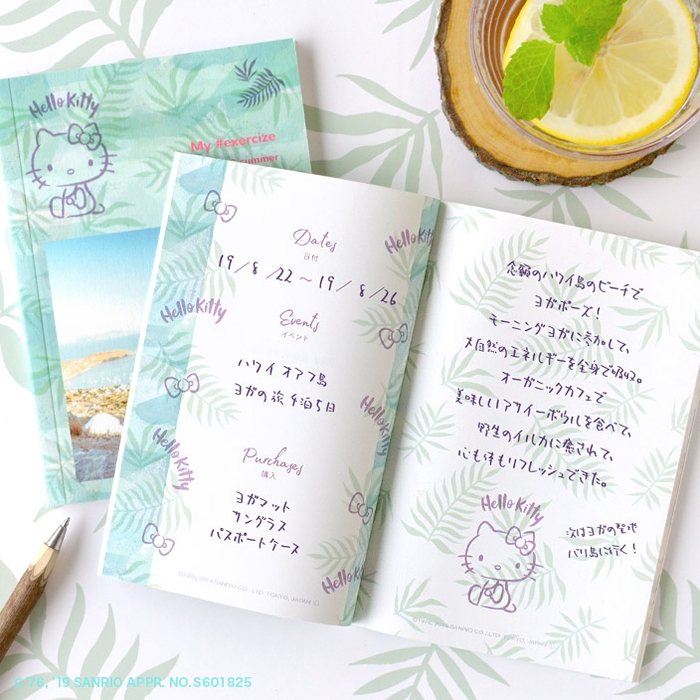 Hello Kitty
My #exercize
summer
Dates
日付
19/8/22～19/8/26
Events
イベント
ハワイ オアフ島
ヨガの旅 4泊5日
Purchases
購入
ヨガマット
サングラス
パスポートケース
Hello Kitty
Hello Kitty
Hello Kitty
Hello Kitty
Hello Kitty
©1976, 2019 SANRIO CO., LTD. TOKYO, JAPAN Ⓛ
念願のハワイ島のビーチで
ヨガポーズ！
モーニングヨガに参加して、
大自然のエネルギーを全身で吸収。
オーガニックカフェで
美味しいアサイーボウルを食べて、
野生のイルカに癒されて、
心も体もリフレッシュできた。
Hello Kitty
次はヨガの聖地
バリ島に行く！
©1976, 2019 SANRIO CO., LTD. TOKYO, JAPAN Ⓛ
© '76, '19 SANRIO APPR. NO.S601825